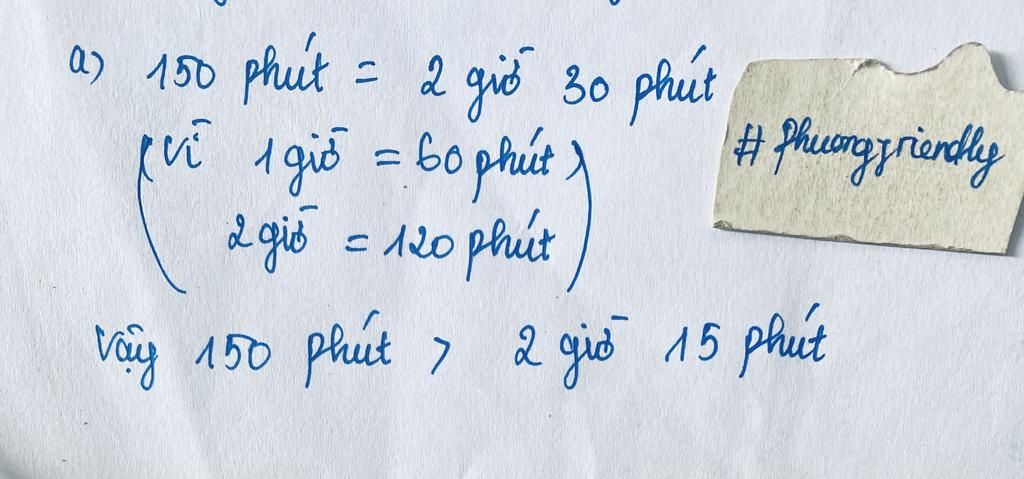 a) 150 phút = 2 giờ 30 phút
(vì 1 giờ = 60 phút)
2 giờ = 120 phút)
Vậy 150 phút > 2 giờ 15 phút
# Phuongfriendly